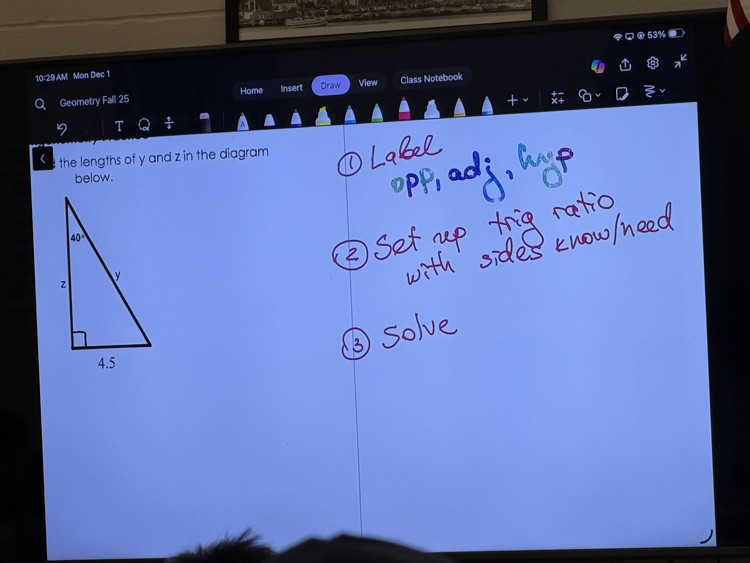 10:29 AM Mon Dec 1
53%
Geometry Fall 25
Home Insert Draw View Class Notebook
T
A
the lengths of y and z in the diagram
below.
40°
z
y
4.5
① Label
opp, adj, hyp
② Set up trig ratio
with sides know/need
③ Solve